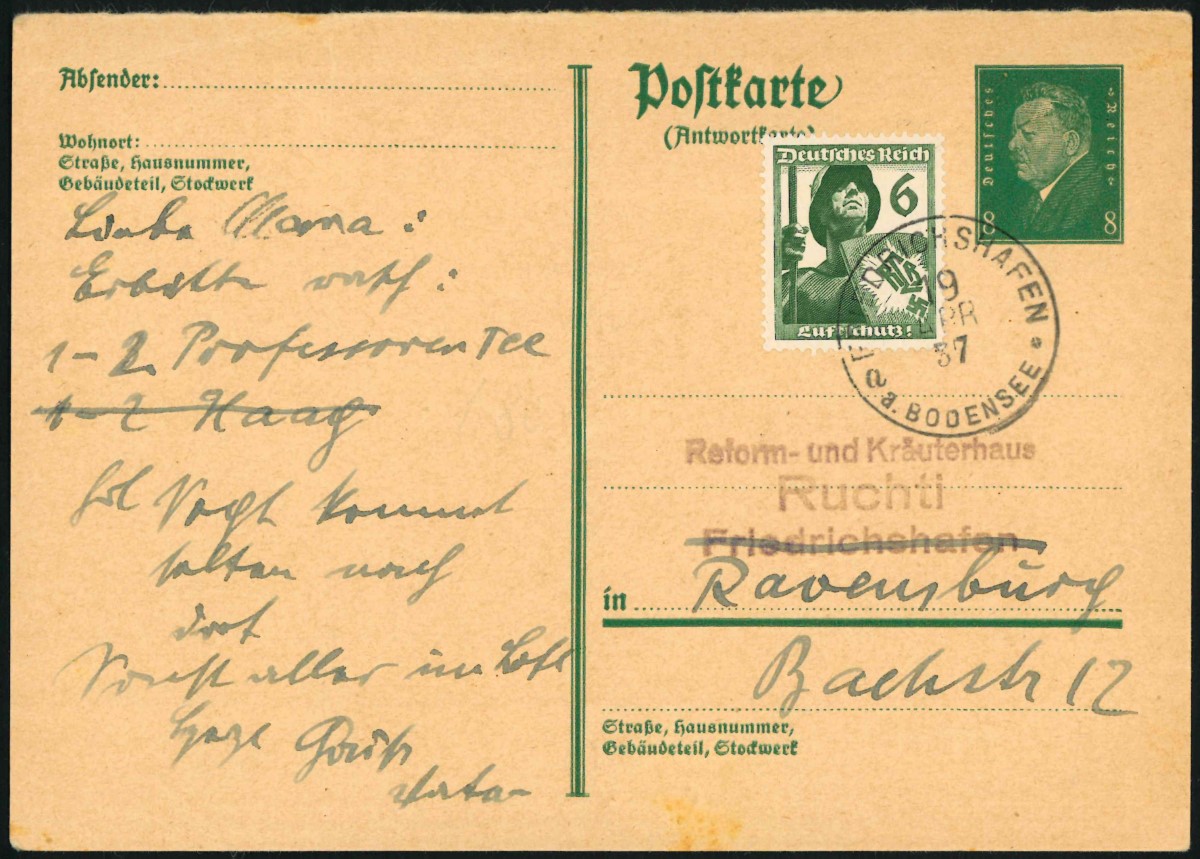 Absender:
Wohnort:
Straße, Hausnummer,
Gebäudeteil, Stockwerk
Liebe Mama:
Erbitte rasch:
1-2 Professoren Tee
1-2 Haag
Vogt kommt
selten nach
dort
Sonst alles im
Herzl Gruß
Postkarte
(Antwortkarte)
Deutsches Reich
8 8
Deutsches Reich
6
RLB
Luftschutz!
FRIEDRICHSHAFEN
19
APR
37
a a. BODENSEE
Reform- und Kräuterhaus
Ruchti
Friedrichshafen
in Ravensburg
Bachstr 12
Straße, Hausnummer,
Gebäudeteil, Stockwerk